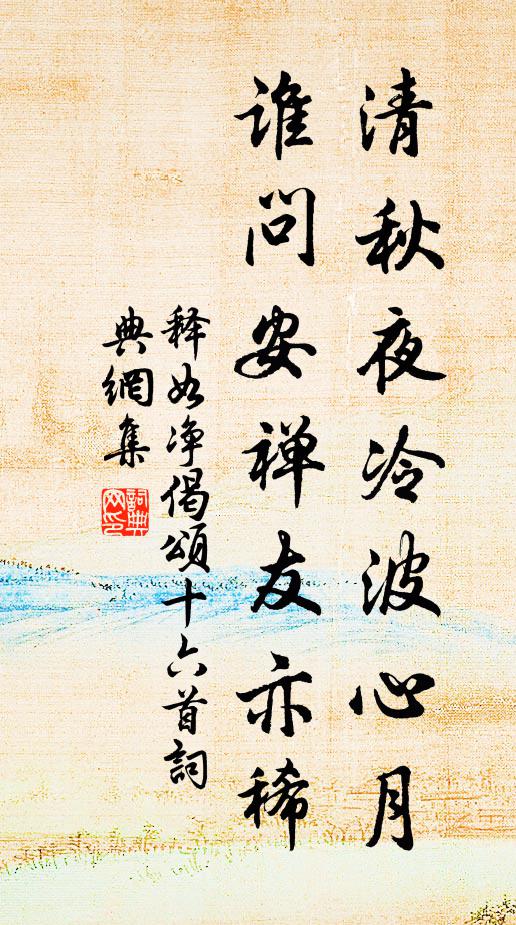 清秋夜冷波心月
谁问安禅友亦稀
释如净偈颂十六首詞
典網集
詞典
网印